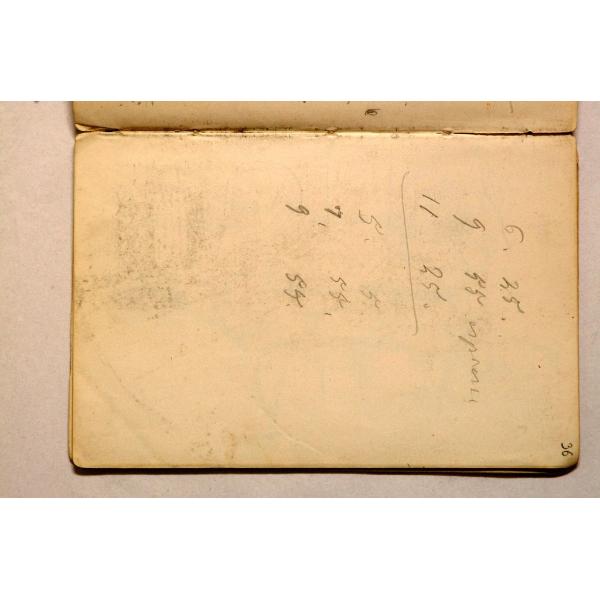 36
6. 25.
9 55
11 25.
5. 5.
7, 55.
9 55.